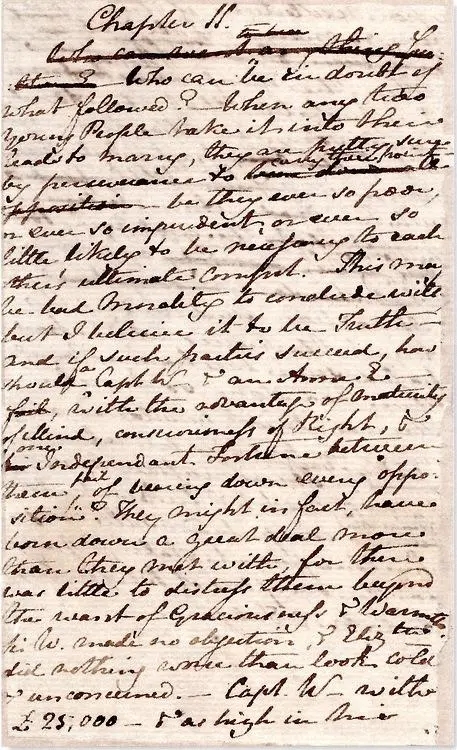 Chapter 11.
Who can be in doubt of
what followed? When any two
Young People take it into their
heads to marry, they are pretty sure
by perseverance to carry their point
be they ever so poor,
or ever so imprudent, or ever so
little likely to be necessary to each
other's ultimate comfort. This may
be bad Morality to conclude with
but I beleive it to be Truth—
and if such parties succeed, how
should a Capt. W— & an Anne E—
fail, with the advantage of maturity
of Mind, consciousness of Right, &
one Independant Fortune between
them fail of bearing down every oppo-
sition? They might in fact, have
born down a great deal more
than they met with, for there
was little to distress them beyond
the want of Graciousness & Warmth.
W. made no objection, & Eliz:th
did nothing worse than look cold
& unconcerned.— Capt. W— with
£25,000— & as high in his